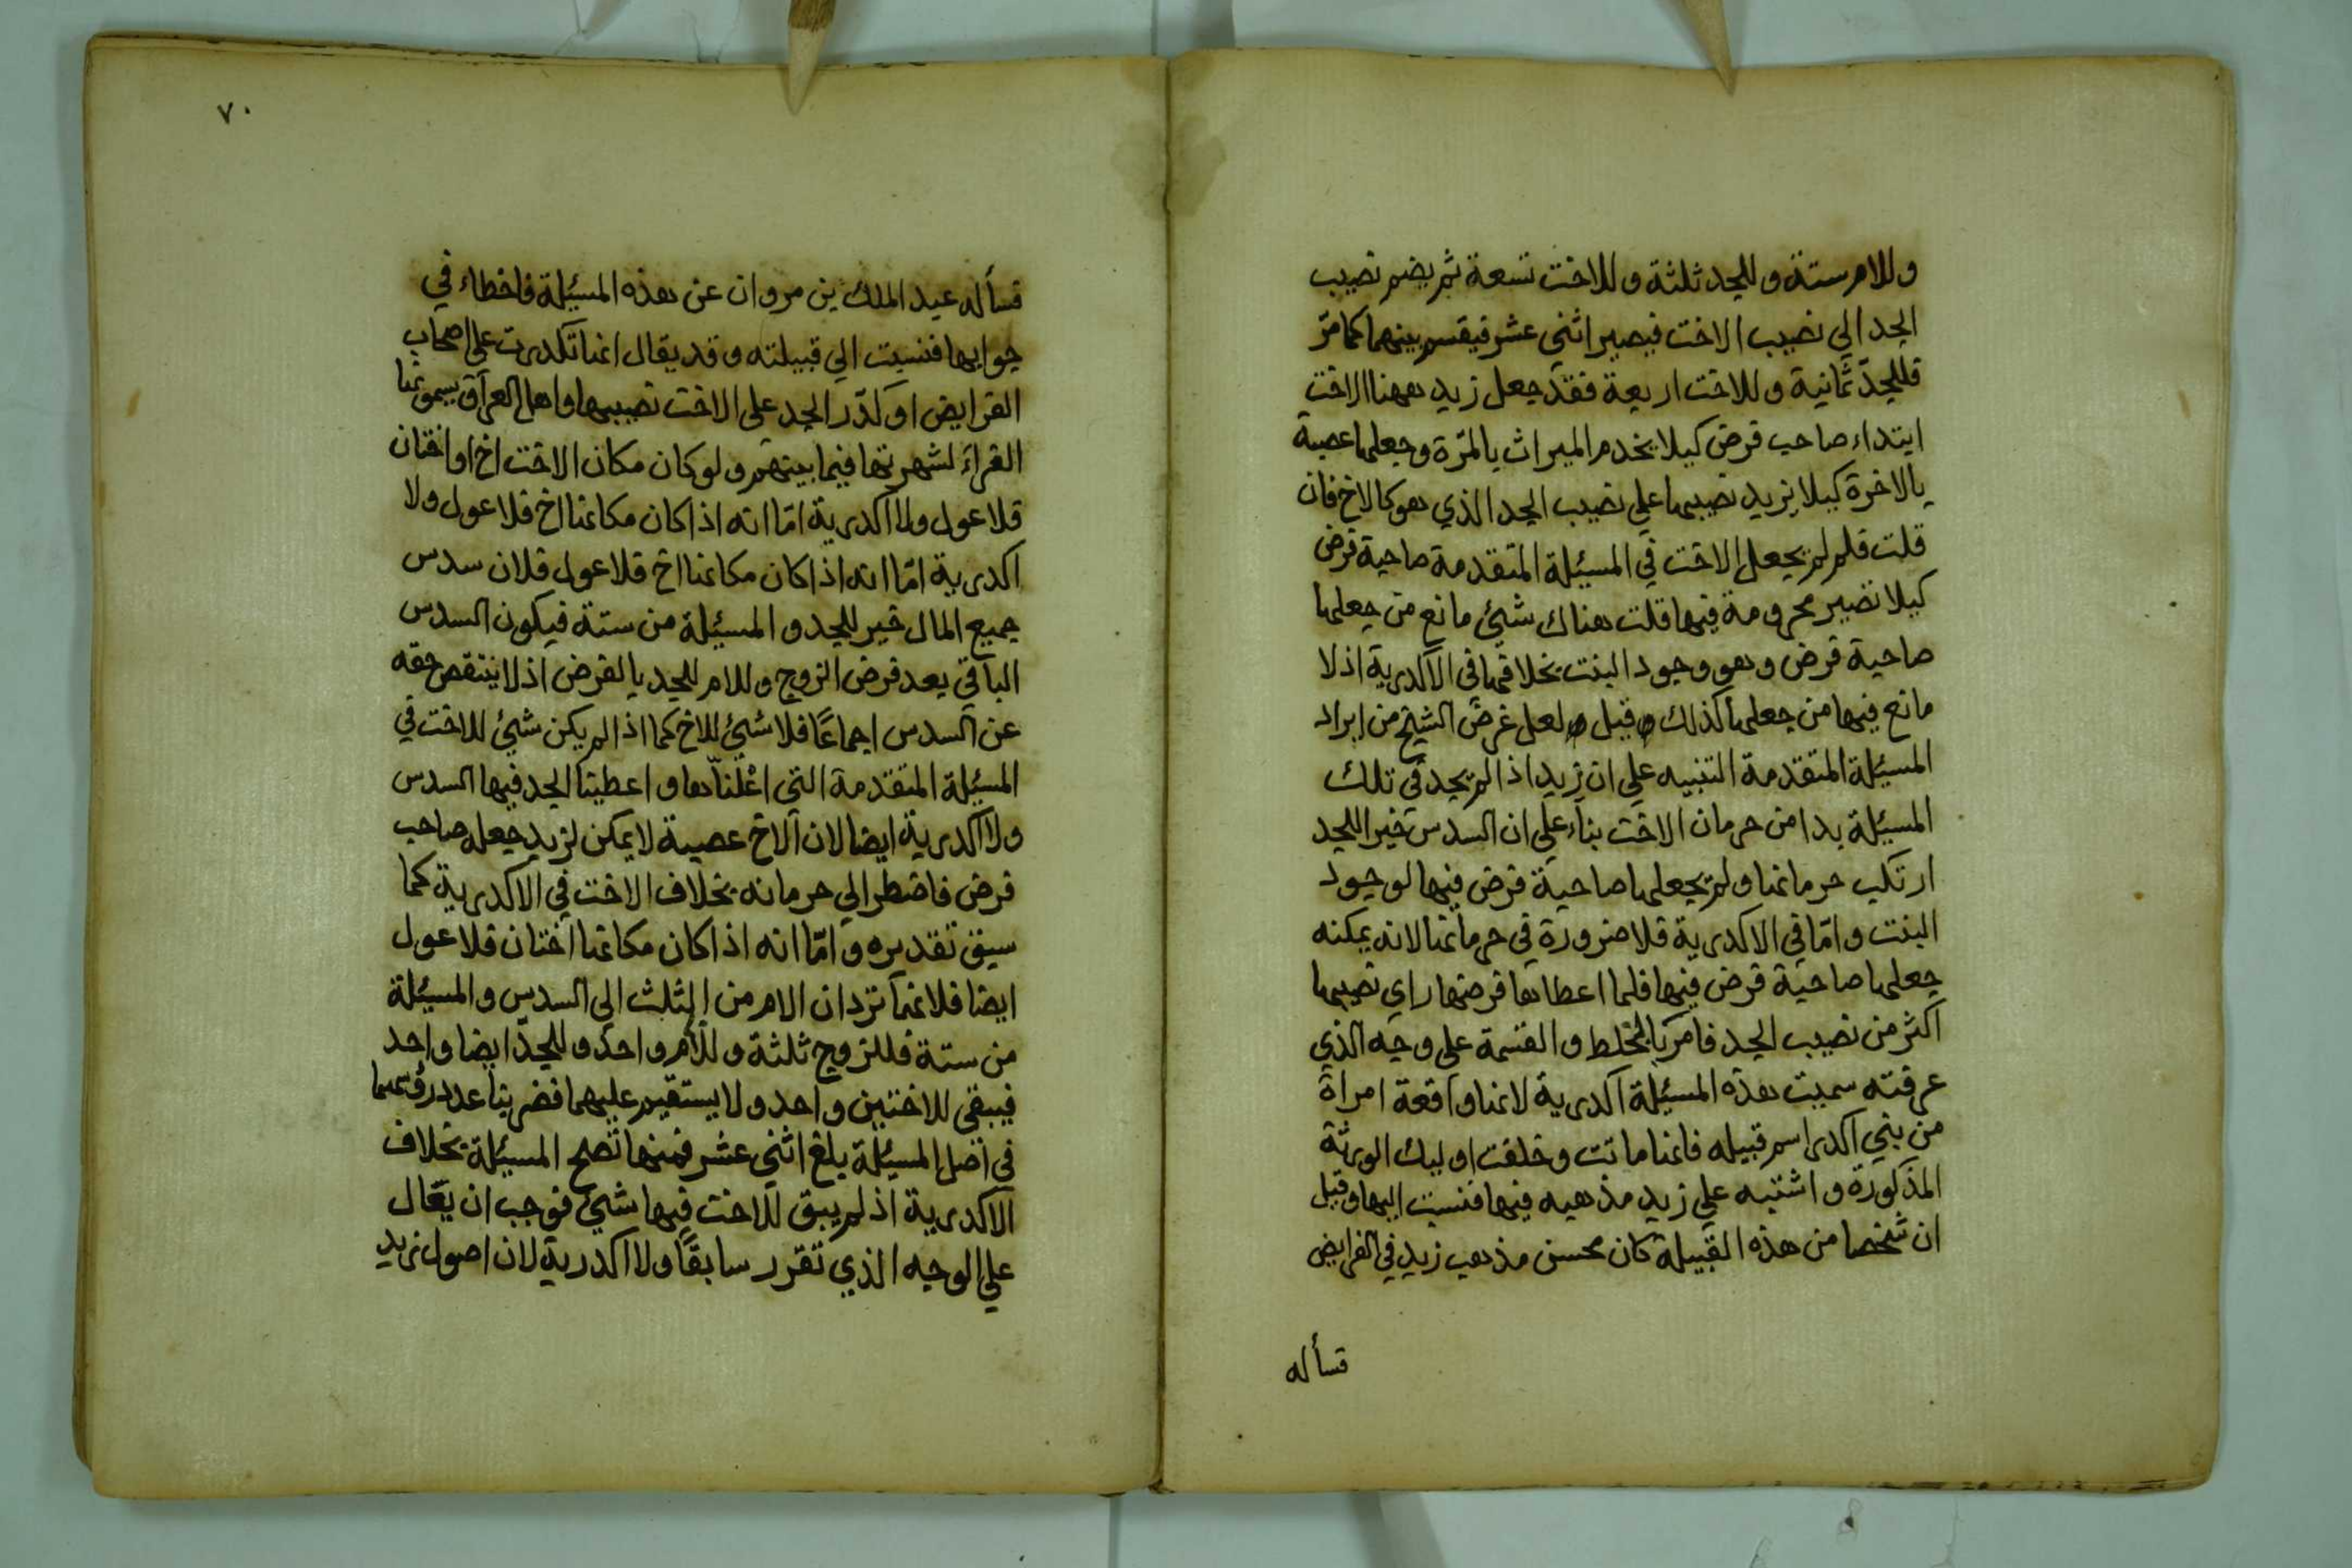 وللام ستة وللجد ثلثة وللاخت تسعة ثم يضم نصيب
الجد الي نصيب الاخت فيصير اثني عشر فيقسم بينهما كما مرّ
فللجدّ ثمانية وللاخت اربعة فقد جعل زيد ههنا الاخت
ابتداء صاحب فرض كيلا يخدم الميراث بالمرّة وجعلها عصبة
بالاخرة كيلا يزيد نصيبها علي نصيب الجد الذي هو كالاخ فان
قلت فلم لم يجعل الاخت في المسئلة المتقدمة صاحبة فرض
كيلا تصير محرومة فيها قلت هناك شئ مانع من جعلها
صاحبة فرض وهو وجود البنت بخلافها في الاكدرية اذ لا
مانع فيها من جعلها كذلك وقيل ولعل غرض الشيخ من ايراد
المسئلة المتقدمة التنبيه علي ان زيد اذا لم يجد في تلك
المسئلة بدا من حرمان الاخت بناء علي ان السدس خير اللجد
ارتكب حرمانها ولم يجعلها صاحبة فرض فيها لوجود
البنت وامّا في الاكدرية فلا ضرورة في حرمانها لانه يمكنه
جعلها صاحبة فرض فيها فلما اعطاها فرضها راي نصيبها
اكثر من نصيب الجد فامر بالخلط والقسمة علي وجه الذي
عرفته سميت هذه المسئلة اكدرية لانها واقعة امراة
من بني اكدر اسم قبيله فانها ماتت وخلفت اوليك الورثة
المذكورة واشتبه علي زيد مذهبه فيها فنسبت اليها وقيل
ان شخصا من هذه القبيلة كان محسن مذهب زيد في الفرايض
فسأله
٧٠
فسأله عبد الملك بن مروان عن هذه المسئلة فاخطاء في
جوابها فنسبت الي قبيلته وقد يقال انها تكدرت علي اصحاب
الفرايض او كدّر الجد علي الاخت نصيبها واهل العراق يسمونها
الغراءَ لشهرتها فيما بينهم ولو كان مكان الاخت اخ او اختان
فلا عول ولا اكدرية امّا انه اذا كان مكانها اخ فلا عول ولا
اكدرية امّا انه اذا كان مكانها اخ فلا عول فلان سدس
جميع المال خير للجد والمسئلة من ستة فيكون السدس
الباقي بعد فرض الزوج وللام للجد بالفرض اذ لا ينتقص حقه
عن السدس اجماعًا فلا شئ للاخ كما اذا لم يكن شئ للاخت في
المسئلة المتقدمة التي اعْلناها واعطينا الجد فيها السدس
ولا اكدرية ايضا لان الاخ عصبة لا يمكن لزيد جعله صاحب
فرض فاضطر الي حرمانه بخلاف الاخت في الاكدرية كما
سبق تقديره وامّا انه اذا كان مكانها اختان فلا عول
ايضا فلانهما تردان الام من الثلث الي السدس والمسئلة
من ستة فللزوج ثلثة وللام واحد وللجدّ ايضا واحد
فيبقي للاختين واحد ولا يستقيم عليهما فضربنا عدد رؤسهما
في اصل المسئلة يلغ اثني عشر فمنها تصح المسئلة بخلاف
الاكدرية اذ لم يبق للاخت فيها شئ فوجب ان يقال
علي الوجه الذي تقرر سابقًا ولا اكدرية لان اصول زيد